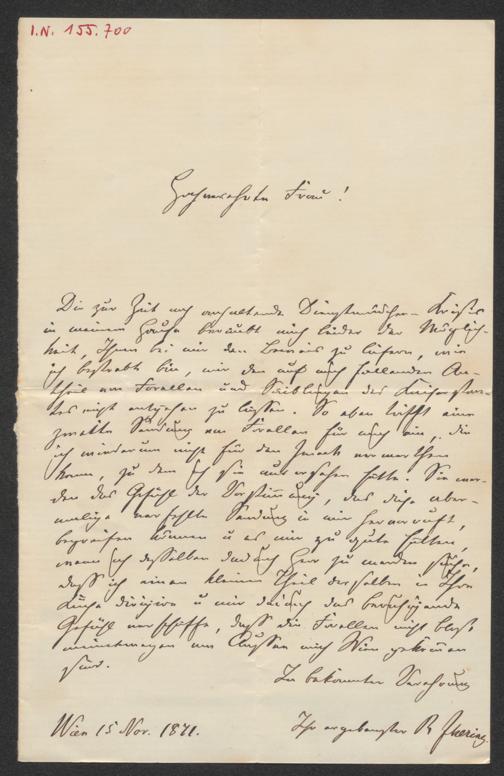 I.N. 155.700
Hochverehrte Frau!
Die zur Zeit noch anhaltende Dienstmädchen-Krisis
in meinem Hause beraubt mich leider der Möglich-
keit, Ihnen bei mir den Beweis zu liefern, wie
ich bestrebt bin, mir den auf mich fallenden An-
theil an Forellen und Saiblingen des
nicht entgehen zu lassen. So eben trifft eine
zweite Sendung von Forellen für mich ein, die
ich wiederum nicht für den Zweck verwerthen
kann, zu dem ich sie ausersehen hatte. Sie wer-
den das Gefühl der Verstimmung, das diese aber-
malige verfehlte Sendung in mir hervorruft,
begreifen können u es mir zu gute halten,
wenn ich desselben dadurch Herr zu werden suche,
daß ich einen kleinen Theil derselben in Ihre
Küche dirigire u mir dadurch das beruhigende
Gefühl verschaffe, daß die Forellen nicht bloß
meinetwegen von Aussee nach Wien gekommen
sind.
In bekannter Verehrung
Wien 15 Nov. 1871.
Ihr ergebenster R Jhering.